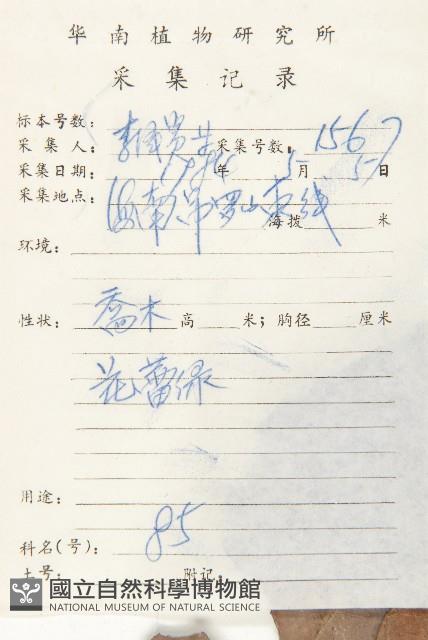 华南植物研究所
采集记录
标本号数:
采集人: 采集号数: 1567
采集日期: 年 5 月 5 日
采集地点: 海南 吊罗山东线
海拨 米
环境:
性状: 喬木 高 米; 胸径 厘米
花蕾绿
用途:
科名(号): 85
土号: 附记:
國立自然科學博物館
NATIONAL MUSEUM OF NATURAL SCIENCE